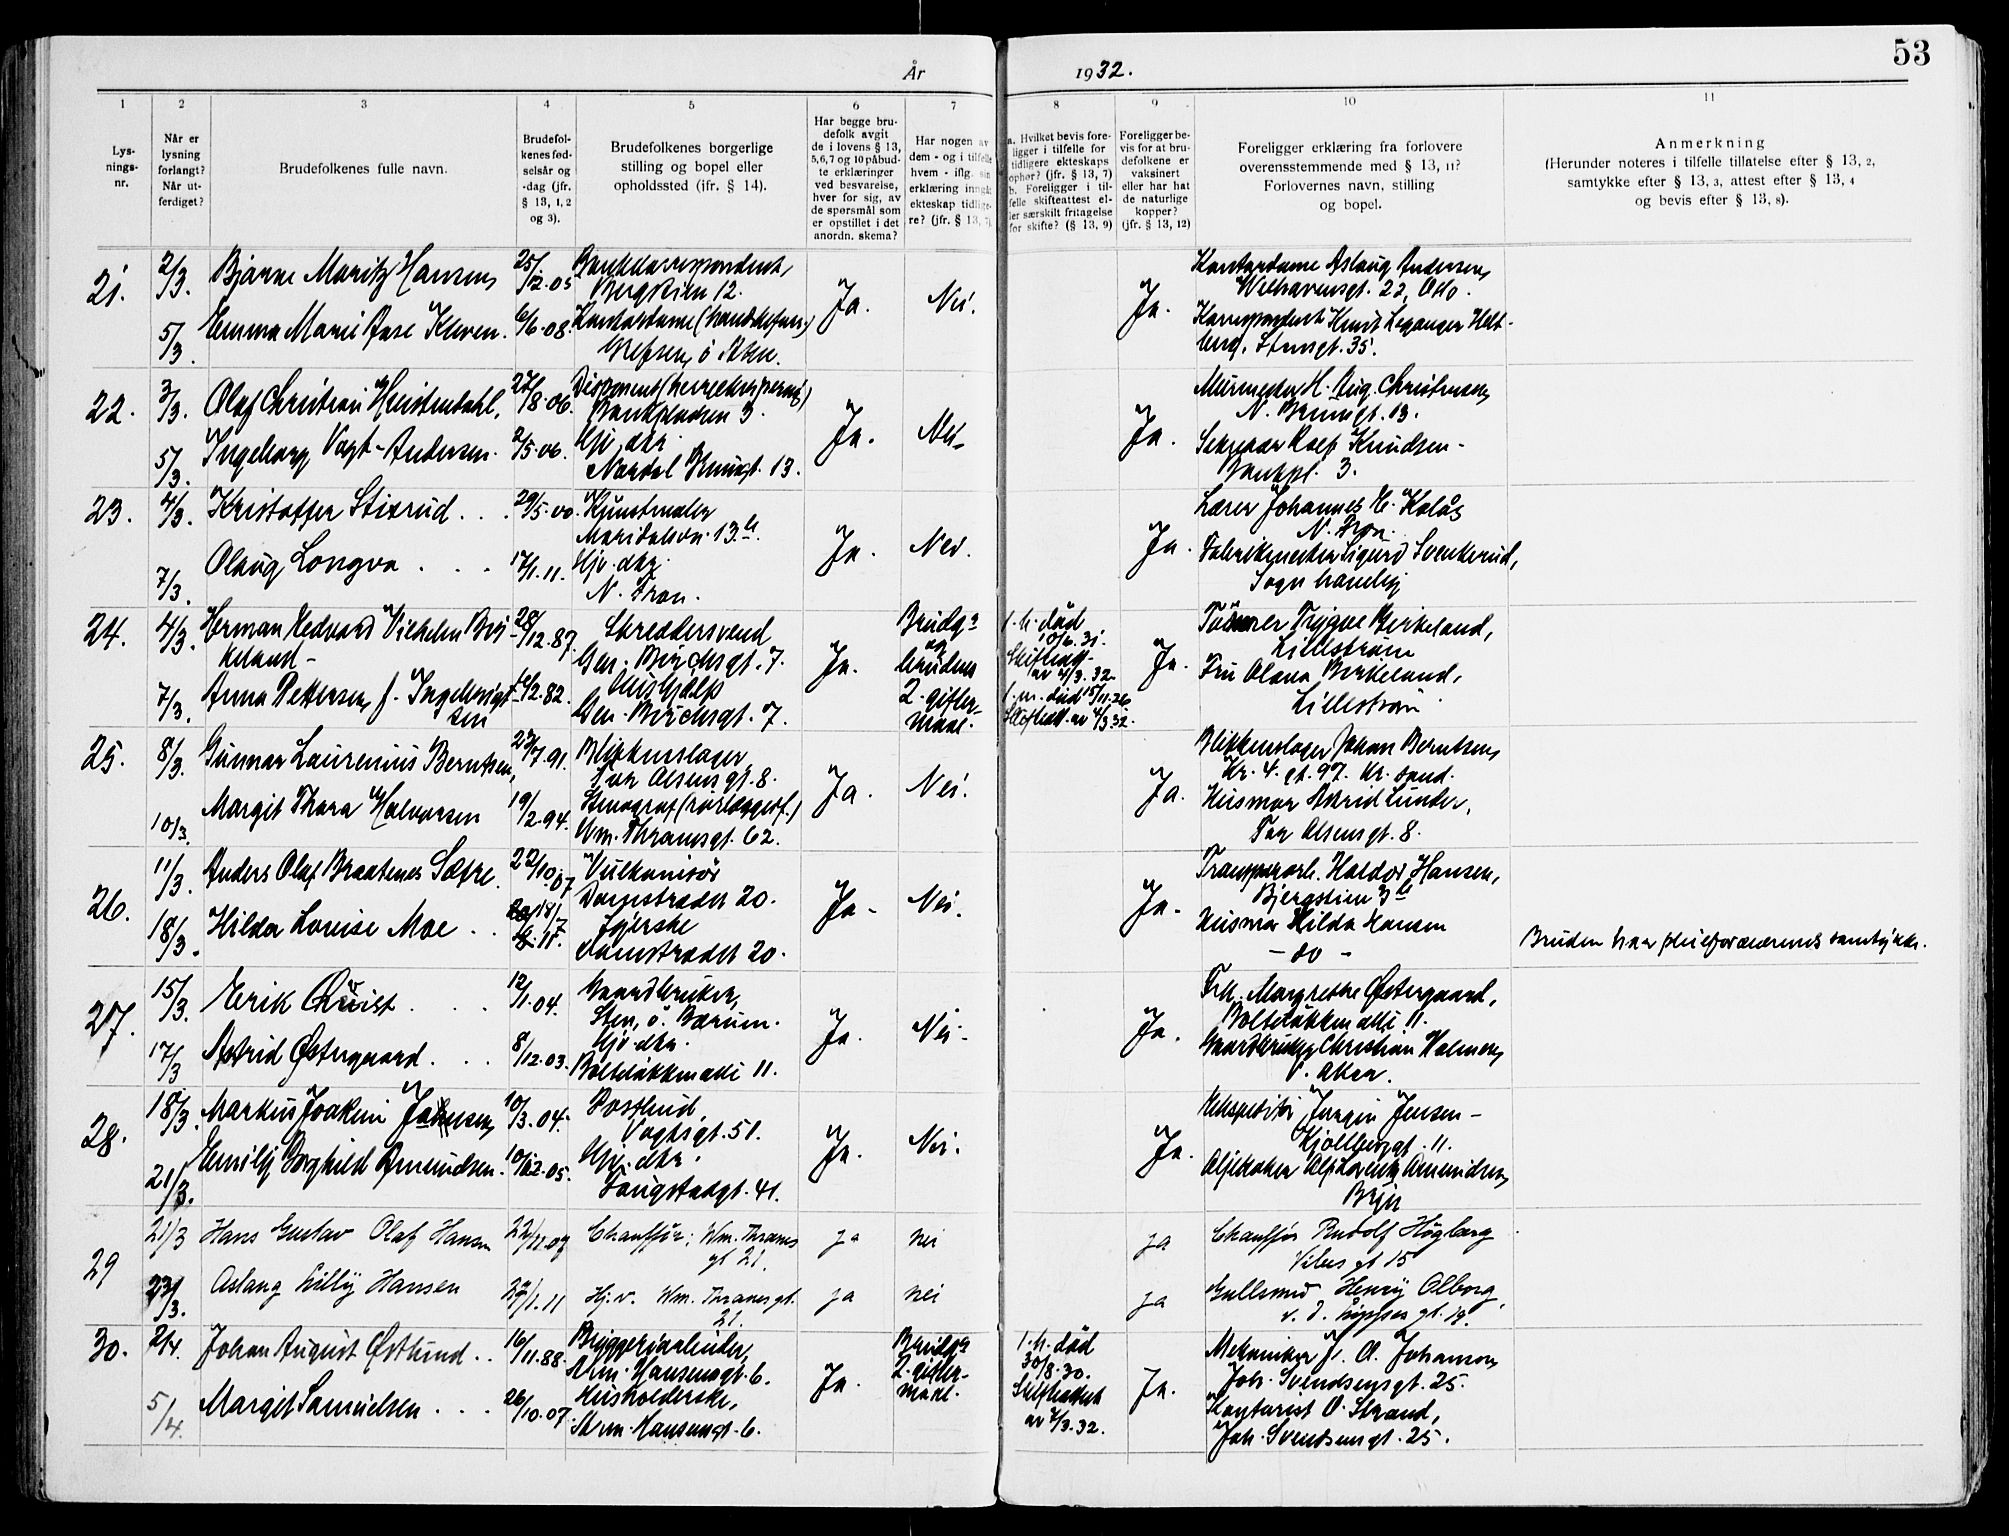 År 1932.
53
1 2 3 4 5 6 7 8 9 10 11
Lys-
nings-
nr.
Når er
lysning
forlangt?
Når ut-
ferdiget?
Brudefolkenes fulle navn.
Brudefol-
kenes fød-
selsår og
-dag (jfr.
§ 13, 1, 2
og 3).
Brudefolkenes borgerlige
stilling og bopel eller
opholdssted (jfr. § 14).
Har begge bru-
defolk avgit
de i lovens § 13,
5, 6, 7 og 10 påbud-
te erklæringer
ved besvarelse,
hver for sig, av
de spørsmål som
er opstillet i det
anordn. skema?
Har nogen av
dem - og i tilfelle
hvem - iflg. sin
erklæring inngåt
ekteskap tidlige-
re? (jfr. § 13, 7)
a. Hvilket bevis fore-
ligger i tilfelle for
tidligere ekteskaps
ophør? (jfr. § 13, 7)
b. Foreligger i til-
felle skifteattest el-
ler særskilt fritagelse
for skifte? (§ 13, 9)
Foreligger be-
vis for at bru-
defolkene er
vaksinert
eller har hat
de naturlige
kopper?
(jfr. § 13, 12)
Foreligger erklæring fra forlovere
overensstemmende med § 13, 11?
Forlovernes navn, stilling
og bopel.
Anmerkning
(Herunder noteres i tilfelle tillatelse efter § 13, 2,
samtykke efter § 13, 3, attest efter § 13, 4
og bevis efter § 13, 8).
21. 2/3. Bjarne Moritz Hansen 25/12.05 Bankkorrespondent, Ja. Nei. Ja. Kontordame Aslaug Andersen,
Bergstien 12. Welhavensgt. 22, Oslo.
5/3. Emma Marie Aase Kleven. 6/6.08. Kontordame Korrespondent Knud Leganger Helt-
Grefsen, ø. Aker. berg, Stensgt. 35.
22. 3/3. Olaf Christian Christendahl, 27/8.06. Disponent Ja. Nei Ja. Murmester H. Aug. Christensen
Bankpladsen 3. N. Brunsgt. 13.
5/3. Ingeborg Vogt-Andersen. 2/5.06. Hjv. dtr. Rolf Knudsen -
Nordal Brunsgt. 13. Bankpl. 3.
23. 4/3. Kristoffer Stixrud . . . 29/5.00. Kunstmaler Ja. Nei. Ja. Lærer Johannes H. Kolås
Maridalsvn. 13 b. N. Fron.
7/3. Olaug Longva . . . 17/1.11. Hjv. dtr. Fabrikmester Sigurd Svenkerud,
N. Fron. Sogn haveby
24. 4/3. Herman Hedvard Vilhelm Bir- 28/12.87. Skreddersvend Ja. Brudg. 1. h. død Ja. Trygve Birkeland,
keland - Gen. Birchsgt. 7. og 10/6.31. Lillestrøm
bruden Skifteatt. av 4/3.32.
7/3. Anna Pettersen f. Ingebrigt- 16/2.82. Hushjelp 2. gifter- 1. m. død 15/11.26 Fru Olava Birkeland,
sen Gen. Birchsgt. 7. maal. Skifteatt. av 4/3.32. Lillestrøm
25. 8/3. Gunnar Laurenius Berntsen, 23/7.91. Blikkenslager, Ja. Nei. Ja. Blikkenslager Johan Berntsen
Tor Olsensgt. 8. Kr. 4. gt. 97. Kr. sand.
10/3. Margit Thora Halvorsen 19/2.94. Husmor Astrid Lunder,
Wm. Thranesgt. 62. Tor Olsensgt. 8.
26. 11/3. Anders Olaf Braatenes Sætre. 22/10.07 Vulkanisør Ja - Nei. Ja. Transportarb. Haldor Hansen,
Damstrædet 20. Bjergstien 3 b
18/3. Hilda Louise Moe . . 18/7 11. Syerske Husmor Hilda Hansen
Damstrædet 20. - do - Bruden har pleieforældrenes samtykke.
27. 15/3. Erik Qvist . . . 12/1.04. Gaardbruker, Ja. Nei. Ja. Frk. Margrethe Østergaard,
Sten, ø. Bærum. Bolteløkken allé 11.
17/3 Astrid Østergaard. . . 8/12.03. Hjv. dtr. Gaardbruker Christian Holmsen
Bolteløkken allé 11. V. Aker.
28. 18/3. Markus Joakim Jensen 10/3.04. Postbud, Ja. Nei. Ja. Ekspeditør Jørgen Jensen -
Vogtsgt. 51. Kjølberggt. 11.
21/3. Emilly Borghild Amundsen. 10/12.05. Hjv. dtr. Oljekoker Alf Lorentz Amundsen
Langstadgt. 41. Bryn
29 21/3 Hans Gustav Olaf Hansen 22/11.07 Chauffør, Wm. Thranes ja nei ja Chauffør Rudolf Höglberg
gt 21. Vibes gt 15
23/3. Aslaug Lilly Hansen 27/1.11 Hj.v. Wm. Thranes gt. ja nei ja Gullsmed Henry Olborg,
21. v. d. Lippes gt. 19.
30. 2/4. Johan August Østlund . . 16/11.88. Bryggeriarbeider, Ja. Brudg. 1. h. død Ja. Mekaniker J. A. Johanson
Arm. Hansensgt. 6. 2. gifter- 30/8.30. Joh. Svendsensgt. 25.
5/4. Margit Samuelsen . . . 26/10.07. Husholderske, maal. Skifteattest Kontorist O. Strand,
Arm. Hansensgt. 6. av 7/3.32. Joh. Svendsensgt. 25.